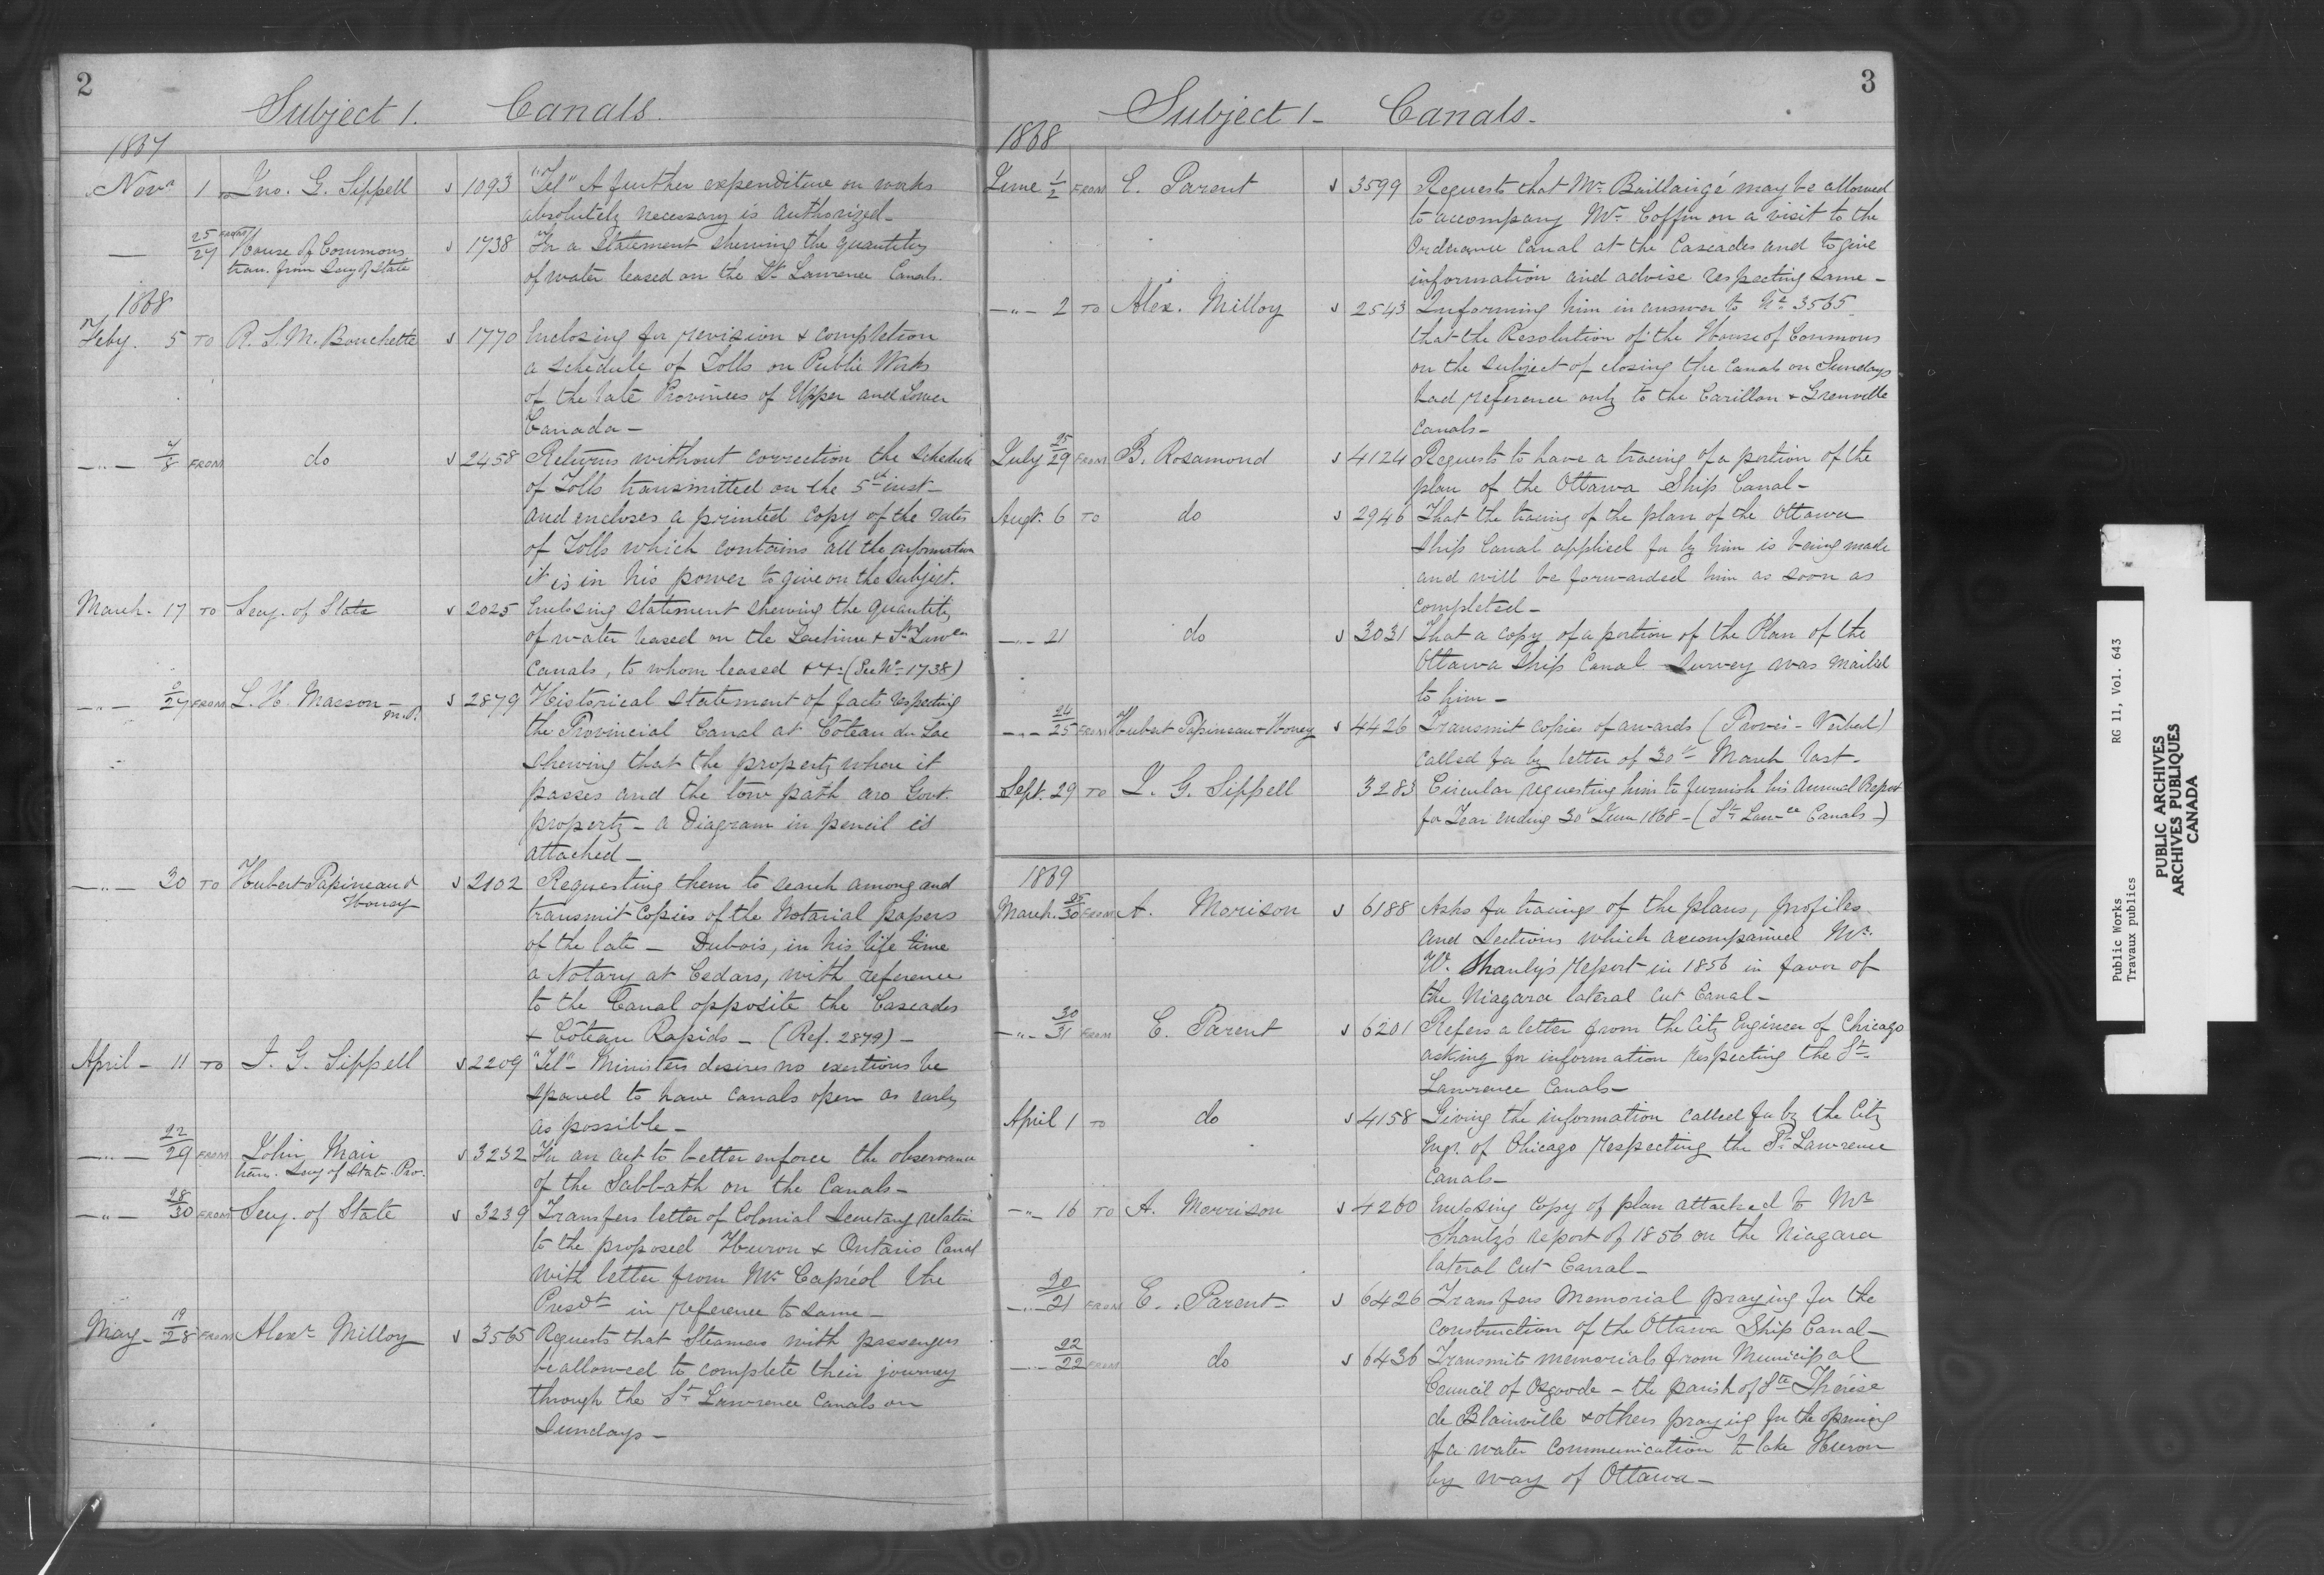 2
Subject 1. Canals.
1867
Novr 1 to Jno. G. Sippell 1093 "Tel" A further expenditure on works
absolutely necessary is authorized -
— 25/27 FROM House of Commons 1738 For a Statement shewing the quantities
tran. from Secy of State of water leased on the St Lawrence Canals.
1868
Feby. 5 TO R. S. M. Bouchette 1770 Enclosing for revision & completion
a schedule of Tolls on Public Works
of the late Provinces of Upper and Lower
Canada -
—"— 7/8 FROM do 2458 Returns without correction the schedule
of Tolls transmitted on the 5th inst -
and encloses a printed copy of the rates
of Tolls which contains all the information
it is in his power to give on the subject.
March - 17 TO Secy. of State 2025 Enclosing statement shewing the quantity
of water leased on the Lachine & St Lawce
Canals, to whom leased &c (See No 1738)
—"— 27 FROM L. H. Masson - M.P. 2879 Historical statement of facts respecting
the Provincial Canal at Côteau du Lac
shewing that the property where it
passes and the tow path are Govt.
property - a Diagram in pencil is
attached -
—"— 30 TO Hubert Papineau & 2102 Requesting them to search among and
Honey transmit copies of the Notarial papers
of the late - Dubois, in his life time
a Notary at Cedars, with reference
to the Canal opposite the Cascades
& Côteau Rapids - (Ref. 2879) -
April - 11 TO J. G. Sippell 2209 "Tel" Minister desires no exertions be
spared to have canals open as early
as possible -
—"— 22/29 FROM John Mair 3232 For an act to better enforce the observance
tran. Secy of State. Pro. of the Sabbath on the Canals -
—"— 28/30 FROM Secy. of State 3239 Transfers letter of Colonial Secretary relative
to the proposed Huron & Ontario Canal
with letter from Mr Capréol the
Presdt in reference to same -
May - 19/28 FROM Alexr Milloy 3565 Requests that Steamers with passengers
be allowed to complete their journey
through the St Lawrence Canals on
Sundays -
3
Subject 1 - Canals -
1868
June 1/2 FROM E. Parent 3599 Requests that Mr Baillairgé may be allowed
to accompany Mr Coffin on a visit to the
Ordnance Canal at the Cascades and to give
information and advise respecting same -
—"— 2 TO Alex. Milloy 2543 Informing him in answer to No 3565
that the Resolution of the House of Commons
on the subject of closing the Canals on Sundays
had reference only to the Carillon & Grenville
Canals -
July 25/29 FROM B. Rosamond 4124 Requests to have a tracing of a portion of the
plan of the Ottawa Ship Canal -
Augt. 6 TO do 2946 That the tracing of the plan of the Ottawa
Ship Canal applied for by him is being made
and will be forwarded him as soon as
completed -
—"— 21 do 3031 That a copy of a portion of the Plan of the
Ottawa Ship Canal Survey was mailed
to him -
—"— 24/25 FROM Hubert Papineau & Honey 4426 Transmit copies of awards (Proces - Verbal)
called for by letter of 30th March last -
Sept. 29 TO J. G. Sippell 3283 Circular requesting him to furnish his Annual Report
for Year ending 30 June 1868 - (St Lawce Canals -)
1869
March. 25/30 FROM A. Morison 6188 Asks for tracings of the plans, profiles
and Sections which accompanied Mr.
W. Shanly's report in 1856 in favor of
the Niagara lateral cut Canal -
—"— 30/31 FROM E. Parent 6201 Refers a letter from the City Engineer of Chicago
asking for information respecting the St.
Lawrence Canals -
April 1 TO do 4158 Giving the information called for by the City
Engr. of Chicago respecting the St Lawrence
Canals -
—"— 16 TO A. Morrison 4260 Enclosing copy of plan attached to Mr
Shanly's report of 1856 on the Niagara
lateral cut Canal -
—"— 20/21 FROM E. Parent - 6426 Transfers Memorial praying for the
construction of the Ottawa Ship Canal -
—"— 22/22 FROM do 6436 Transmits memorials from Municipal
Council of Osgoode - the parish of Ste Thérèse
de Blainville & others praying for the opening
of a water communication to Lake Huron
by way of Ottawa -
Public Works RG 11, Vol. 643
Travaux publics
PUBLIC ARCHIVES
ARCHIVES PUBLIQUES
CANADA